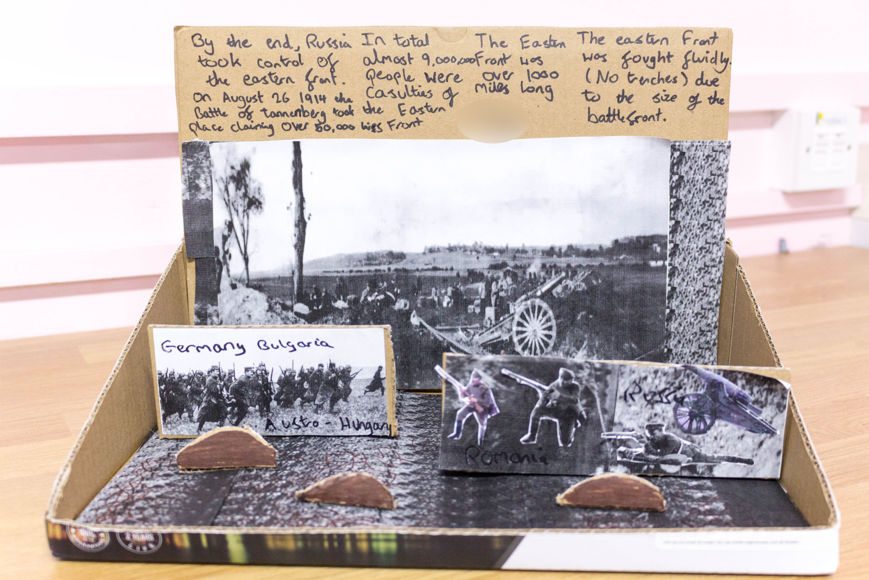 By the end, Russia
took control of
the eastern front.
On August 26 1914 the
Battle of tannenberg took
place claiming over 50,000 lives
In total
almost 9,000,000
people were
Casulties of
the Eastern
Front
The Eastern
Front was
over 1000
Miles long
The eastern Front
was fought fluidly.
(No tenches) due
to the size of the
battlefront.
Germany Bulgaria
Austro-Hungary
Romania
Russia